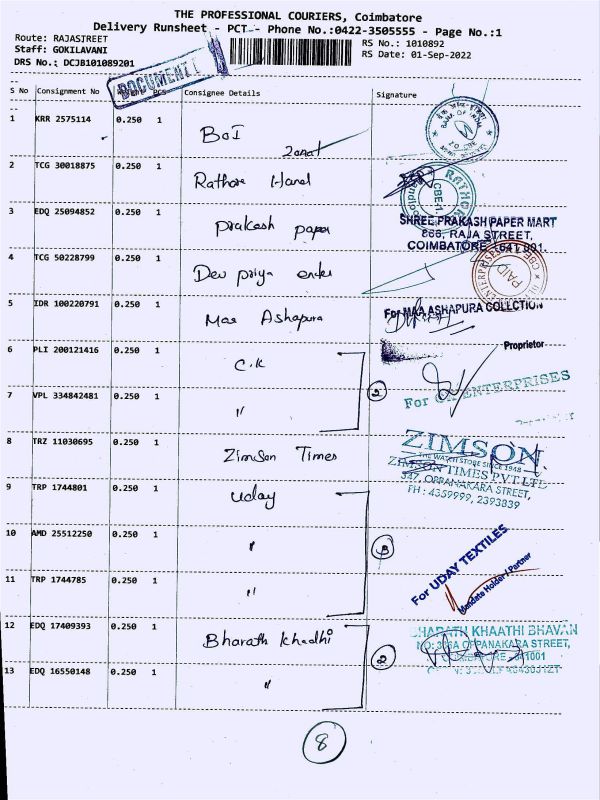 THE PROFESSIONAL COURIERS, Coimbatore
Delivery Runsheet - PCT - Phone No.:0422-3505555 - Page No.:1
Route: RAJASTREET
RS No.: 1010892
Staff: GOKILAVANI
RS Date: 01-Sep-2022
DRS No.: DCJB101089201
DOCUMENT
S No Consignment No PCS Consignee Details Signature
1 KRR 2575114 0.250 1 BOI
BANK OF INDIA
2 TCG 30018875 0.250 1 Rathore Hand
RATHOR
CBE-1.
3 EDQ 25094852 0.250 1 Prakash paper
SHREE PRAKASH PAPER MART
868, RAJA STREET,
COIMBATORE - 641 001.
4 TCG 50228799 0.250 1 Dev priya enter
ENTERPRISES
PAID
5 IDR 100220791 0.250 1 Maa Ashapura
For MAA ASHAPURA COLLCTION
Proprietor
6 PLI 200121416 0.250 1 C.K
2
For CK ENTERPRISES
7 VPL 334842481 0.250 1 "
8 TRZ 11030695 0.250 1 Zimson Times
ZIMSON
THE WATCH STORE SINCE 1948
ZIMSON TIMES PVT.LTD
347, OPPANAKARA STREET,
PH : 4359999, 2393839
9 TRP 1744801 0.250 1 Uday
10 AMD 25512250 0.250 1 "
3
For UDAY TEXTILES
Mandate Holder / Partner
11 TRP 1744785 0.250 1 "
12 EDQ 17409393 0.250 1 Bharath Khadhi
2
BHARATH KHAATHI BHAVAN
OPPANAKARA STREET,
13 EDQ 16550148 0.250 1 "
8